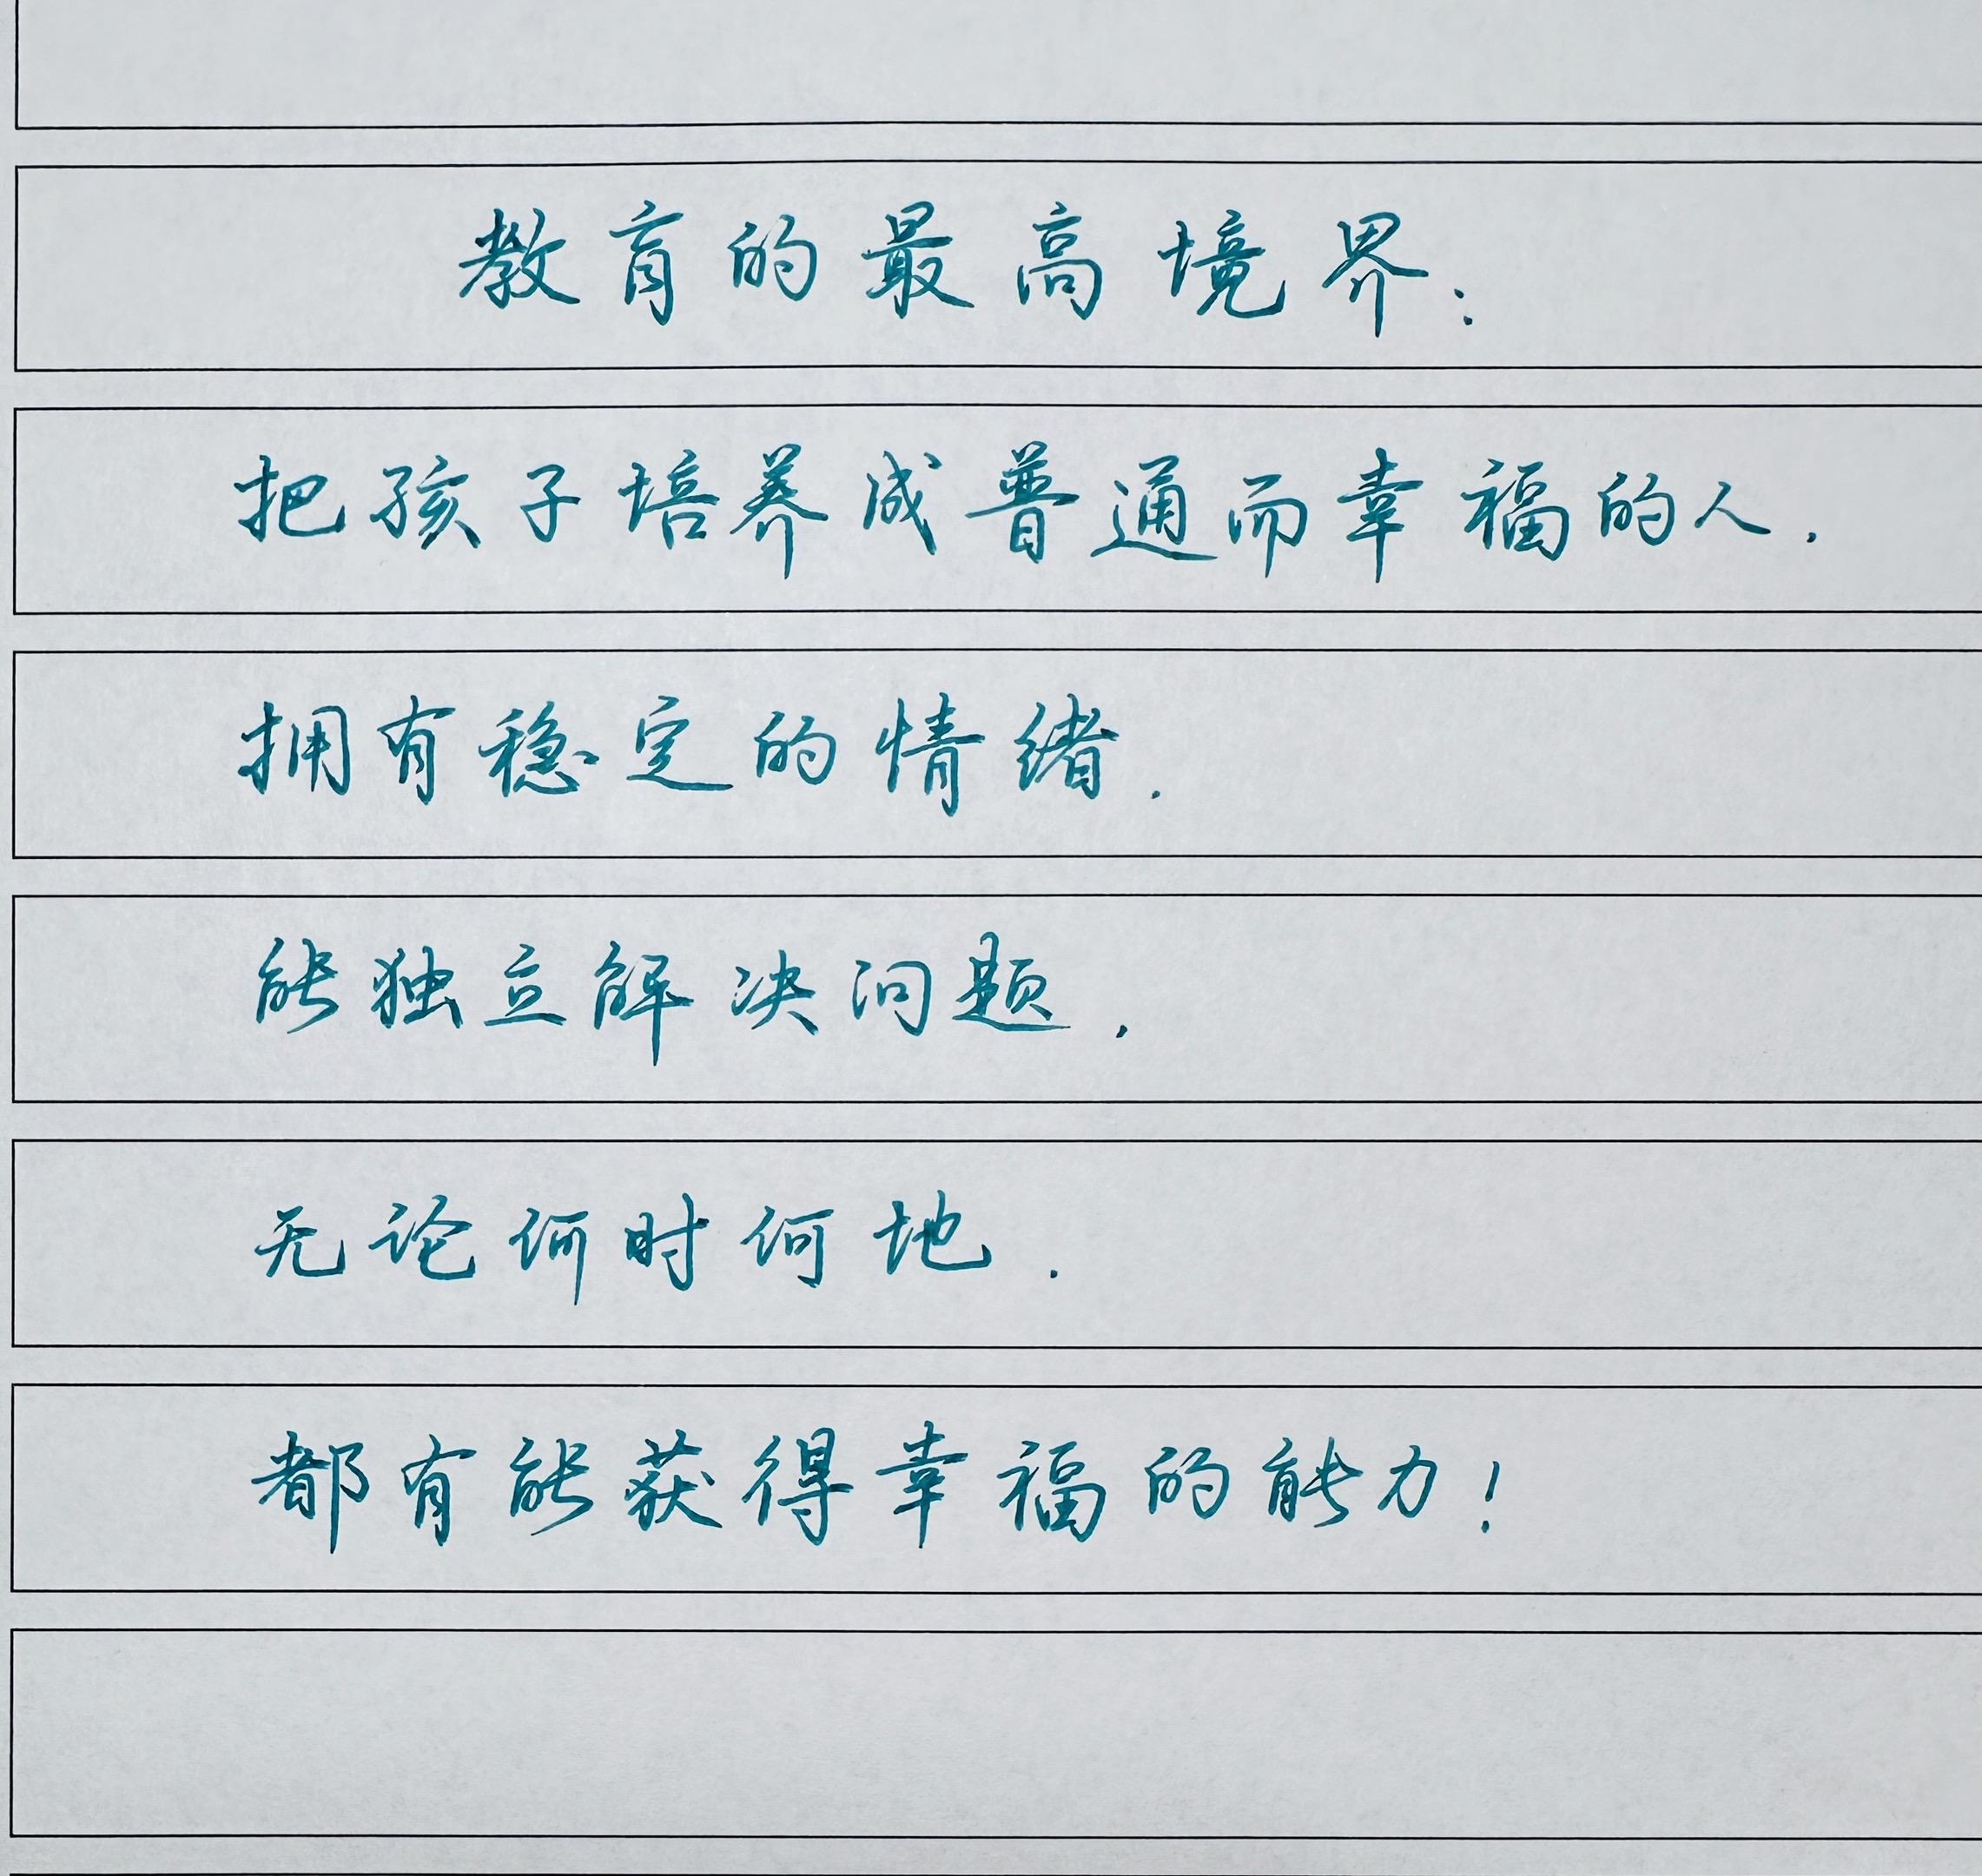 教育的最高境界：
把孩子培养成普通而幸福的人，
拥有稳定的情绪，
能独立解决问题，
无论何时何地，
都有能获得幸福的能力！